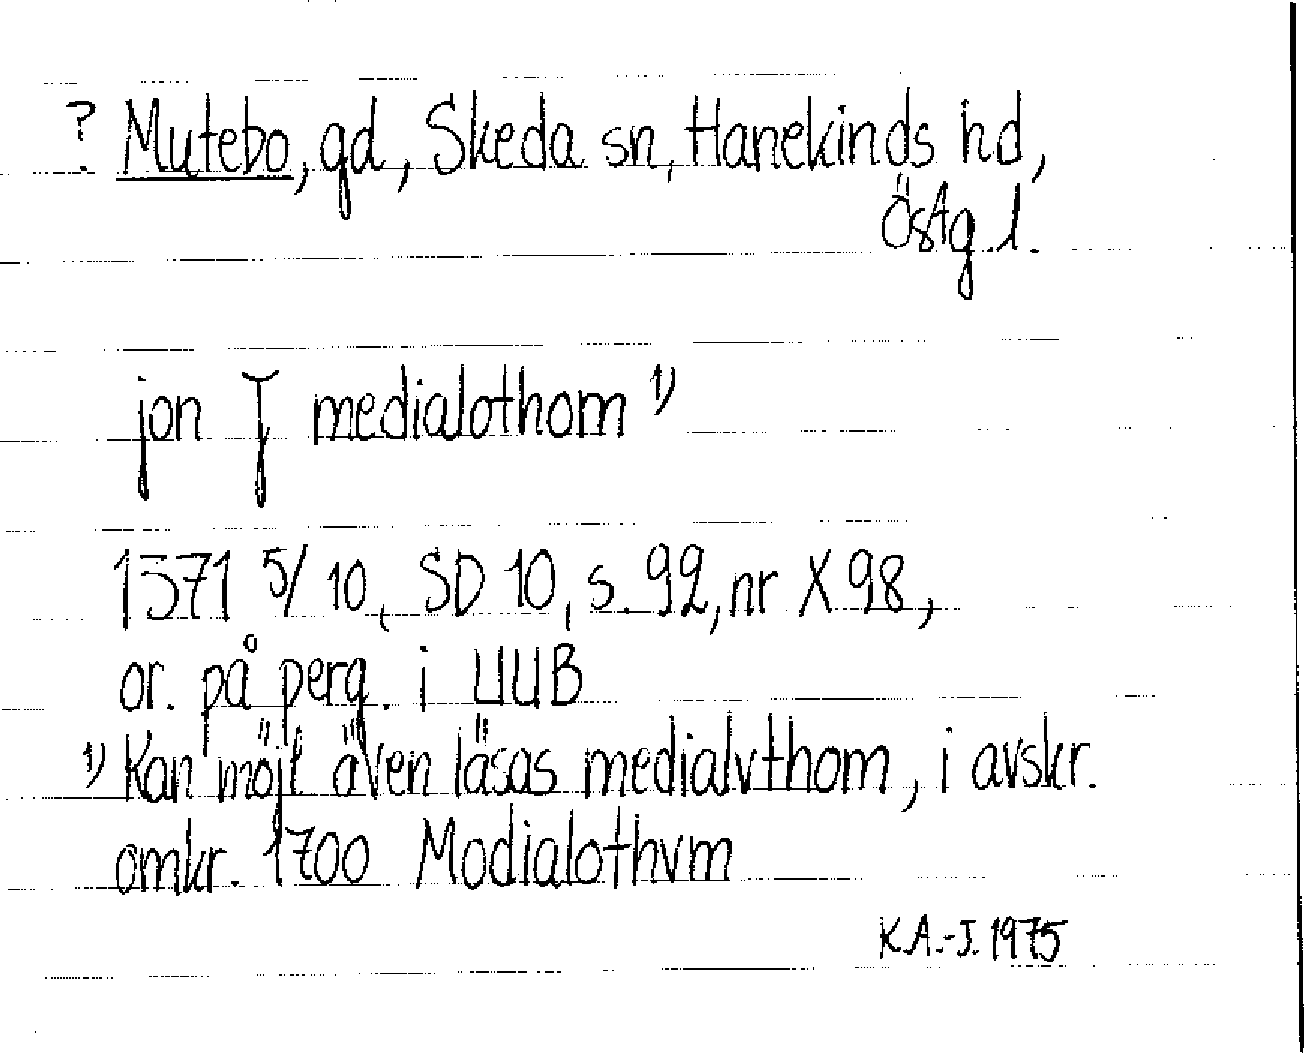 ? Mutebo, gd, Skeda sn, Hanekinds hd,
Östg l.
jon J medialothom 1)
1371 5/10, SD 10, s. 92, nr X 98,
or. på perg. i UUB
1) Kan möjl även läsas medialvthom, i avskr.
omkr. 1700 Modialothvm
K.A.-J. 1975